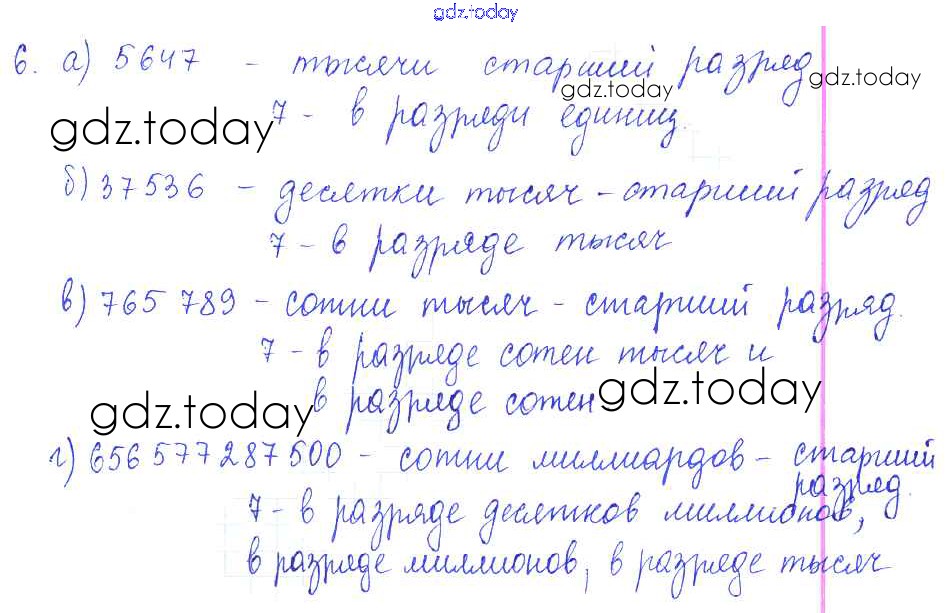 gdz.today
6. а) 5647 - тысячи старший разряд
gdz.today
gdz.today
7 - в разряди единиц.
gdz.today
б) 37536 - десятки тысяч - старший разряд
7 - в разряде тысяч
в) 765 789 - сотни тысяч - старший разряд.
7 - в разряде сотен тысяч и
в разряде сотен
gdz.today
gdz.today
г) 656 577 287 500 - сотни миллиардов - старший
разряд.
7 - в разряде десятков миллионов,
в разряде миллионов, в разряде тысяч